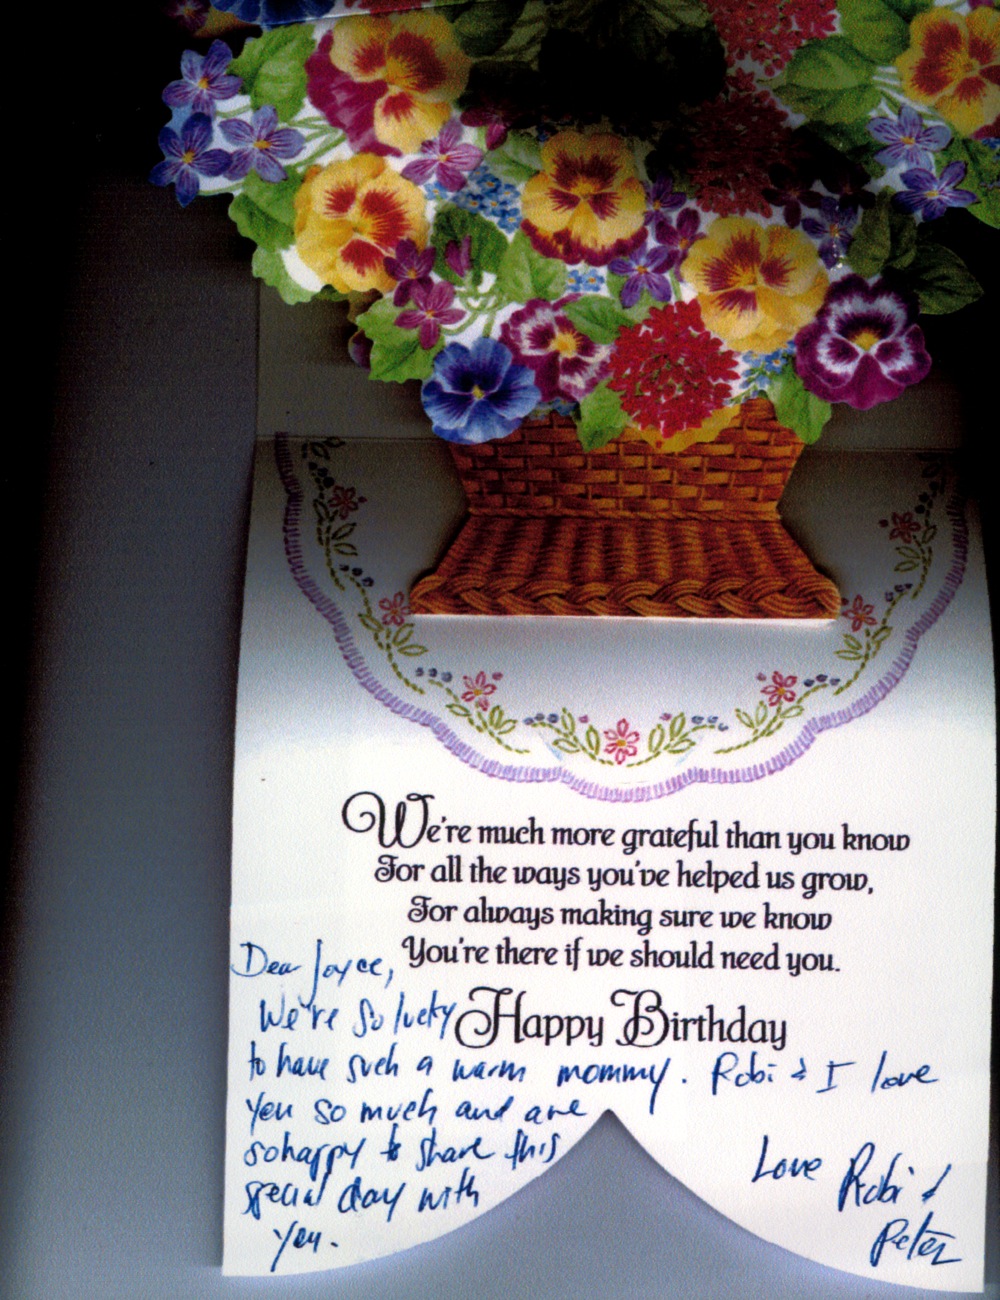 We're much more grateful than you know
For all the ways you've helped us grow,
For always making sure we know
You're there if we should need you.
Happy Birthday
Dear Joyce,
We're so lucky
to have such a warm mommy. Robi & I love
you so much and are
so happy to share this
special day with
you.
Love Robi &
Peter